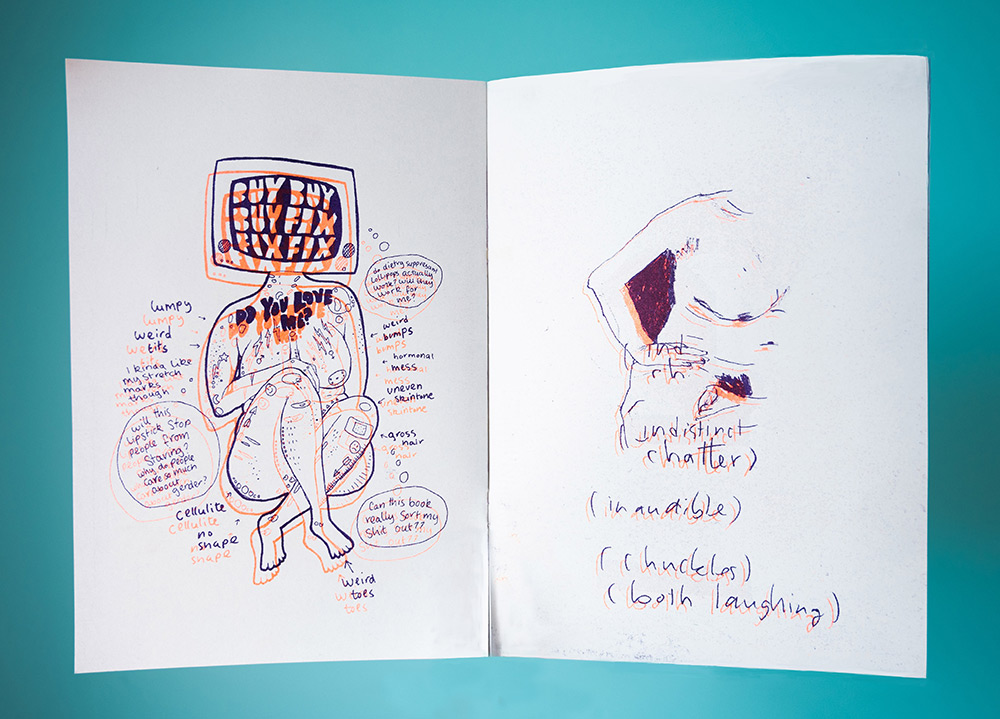 BUY BUY
BUY FIX
FIX FIX
DO YOU LOVE
ME?
do dietry suppresant
Lollipops actually
work? will they
work for
me?
lumpy
weird
tits
I kinda like
my stretch
marks
though
will this
Lipstick Stop
people from
Staring?
why do people
care so much
about
gender?
cellulite
no
shape
weird
bumps
hormonal
mess
uneven
skintone
gross
hair
Can this book
really sort my
shit out??
weird
toes
(indistinct
chatter)
(inaudible)
(chuckles)
(both laughing)